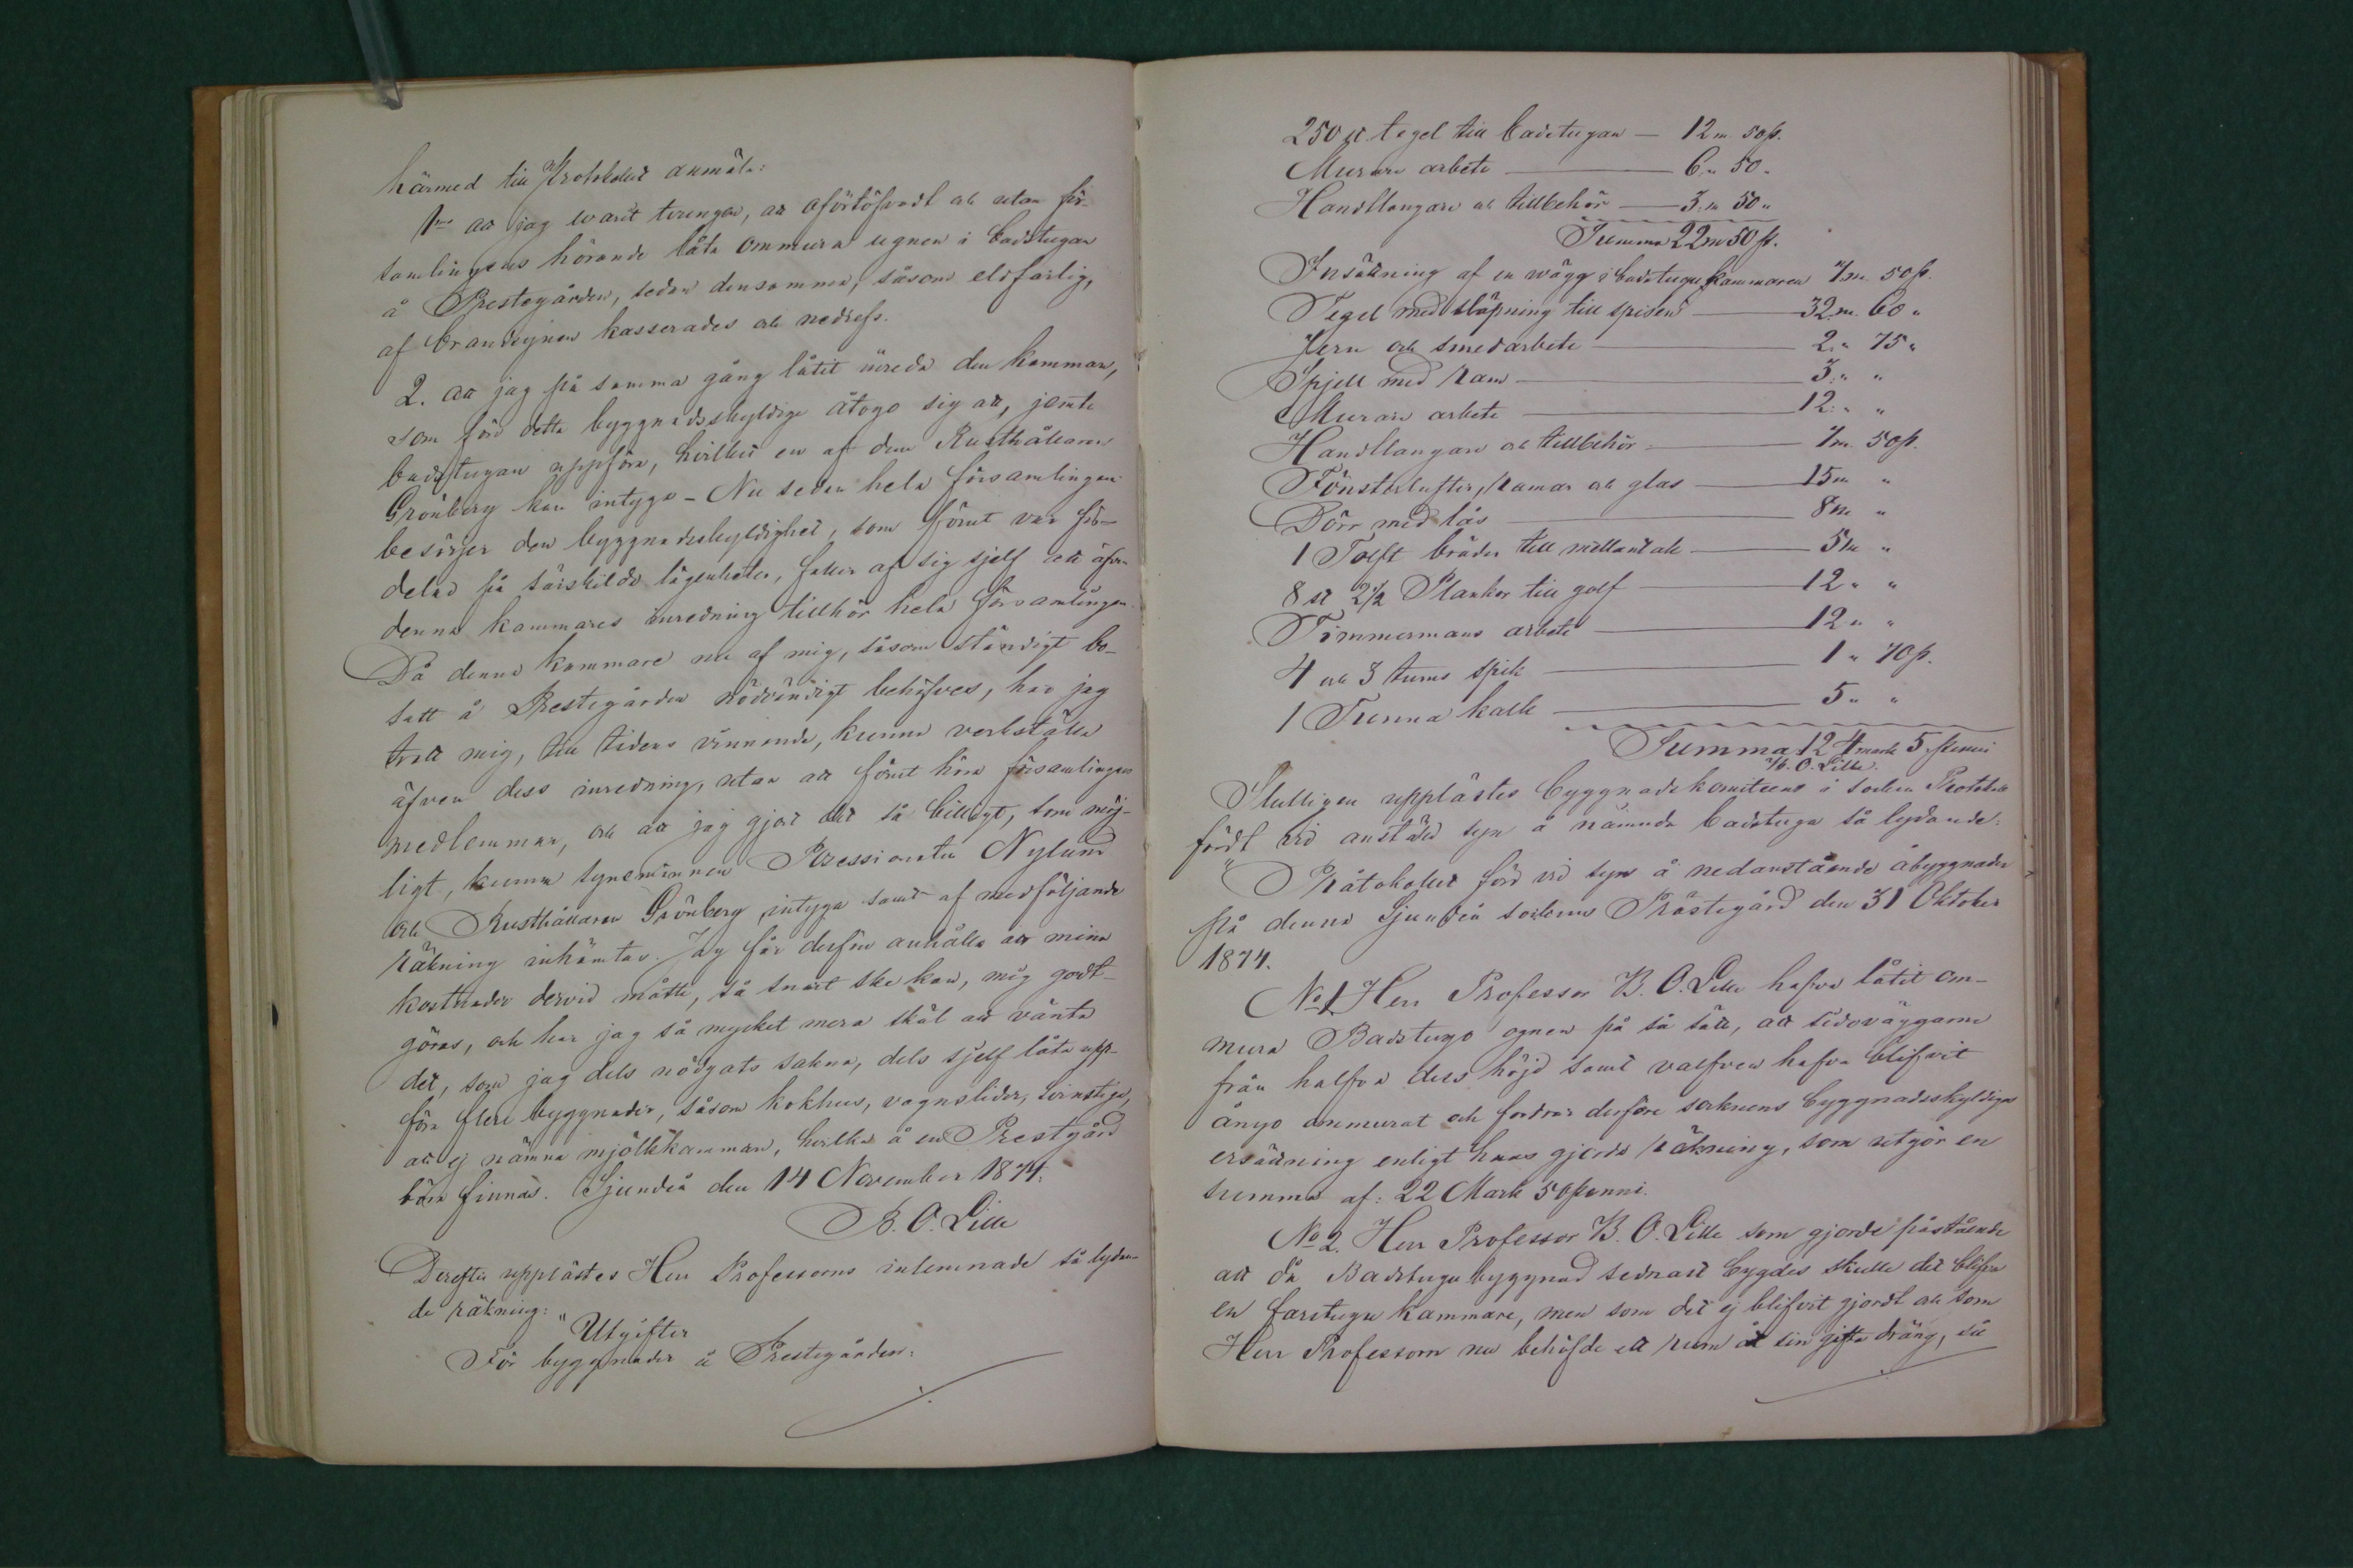 härmed till Protokollet anmäla:
1mo att jag warit tvungen, att oförtöfvadt och utan för-
samlingens hörande låta ommura ugnen i badstugan
å Prestegården, sedan densamma, såsom eldfarlig,
af brandsynen kasserades och nedrefs.
2. att jag på samma gång låtit inreda den kammare,
som förr detta byggnadsskyldige åtogo sig att, jemte
badstugan uppföra, hvilket en af dem Rusthållaren
Grönberg kan intyga – Nu sedan hela församlingen
besörjer den byggnadsskyldighet, som förut var för-
delad på särskilda lägenheter, faller af sig sjelf att äfven
denna kammares inredning tillhör hela församlingen.
Då denna kammare nu af mig, såsom ständigt bo-
satt å Prestegården nödvändigt behöfves, har jag
trott mig, till tidens vinnande, kunna verkställa
äfven dess inredning, utan att förut höra församlingens
medlemmar, och att jag gjort det så billigt, som möj-
ligt, kunna synemännen Possessionaten Nylund
och Rusthållaren Grönberg intyga samt af medföljande
räkning inhämtas. Jag får derför anhålla att mina
kostnader dervid måtte, så snart ske kan, mig godt-
göras, och har jag så mycket mera skäl att vänta
det, som jag dels nödgats sakna, dels sjelf låta upp-
föra flere byggnader, såsom kokhus, vagnslider, svinstiga,
att ej nämna mjölkkammare, hvilka å en Prestgård
böra finnas. Sjundeå den 14 November 1874.
B. O. Lille
Derefter upplästes Herr Professorns inlemnade så lydan-
de räkning:
"Utgifter
För byggnader å Prestegården:
250 st tegel till badstugan — 12 m. 50 p.
Murare arbete — 6 „ 50 „
Handtlangare och tillbehör — 3 „ 50 „
Summa 22 m 50 p.
Insättning af en vägg i badstugu kammaren 7 m. 50 p.
Tegel med släpning till spisen — 32 m. 60 „
Jern och smedarbete — 2 „ 75 „
Spjell med ram — 3 „ „
Murare arbete — 12 „ „
Handtlangare och tillbehör — 7 m. 50 p.
Fönsterlufter, ramar och glas — 15 m „
Dörr med lås — 8 m „
1 Tolft bräder till mellantak — 5 m „
8 st 2 1/2 Plankor till golf — 12 „ „
Timmermans arbete — 12 „ „
4 och 3 tums spik — 1 „ 70 p.
1 Tunna kalk — 5 „ „
Summa 124 mark 5 penni
B. O. Lille.
Slutligen upplästes byggnadskomiteens i socken Protokoll
fördt vid anstäld syn å nämnda badstuga så lydande:
"Protokollet förd vid syn å nedanstående åbyggnader
på denna Sjundeå sockens Prästegård den 31 Oktober
1874.
No 1 Herr Professor B. O. Lille hafva låtit om-
mura Badstugo ognen på så sätt, att sidoväggarne
från halfva dess höjd samt valfven hafva blifvit
ånyo ommurat och fordrar derföre socknens byggnadsskyldiges
ersättning enligt hans gjorda räkning, som utgör en
summa af: 22 Mark 50 penni.
No 2. Herr Professor B. O. Lille som gjorde påstående
att då Badstugu byggnad sednast bygdes skulle det blifva
en farstugu kammare, men som det ej blifvit gjordt och som
Herr Professorn nu behöfde ett rum åt sin gifta dräng, så